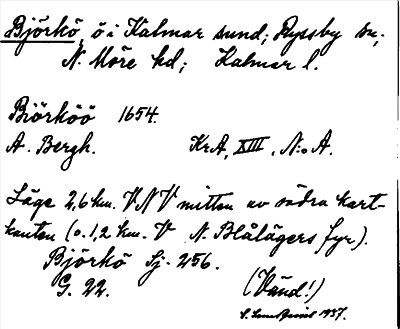 Björkö, ö i Kalmar sund; Ryssby sn;
N. Möre hd; Kalmar l.
Biörköö 1654.
A. Bergh. KrA, XIII, N:o A.
Läge 2,6 km. VNV mitten av södra kart-
kanten (o. 1,2 km. V N. Blålägers fyr).
Björkö Sj. 256.
G. 22. (Vänd!)
S. 1937.